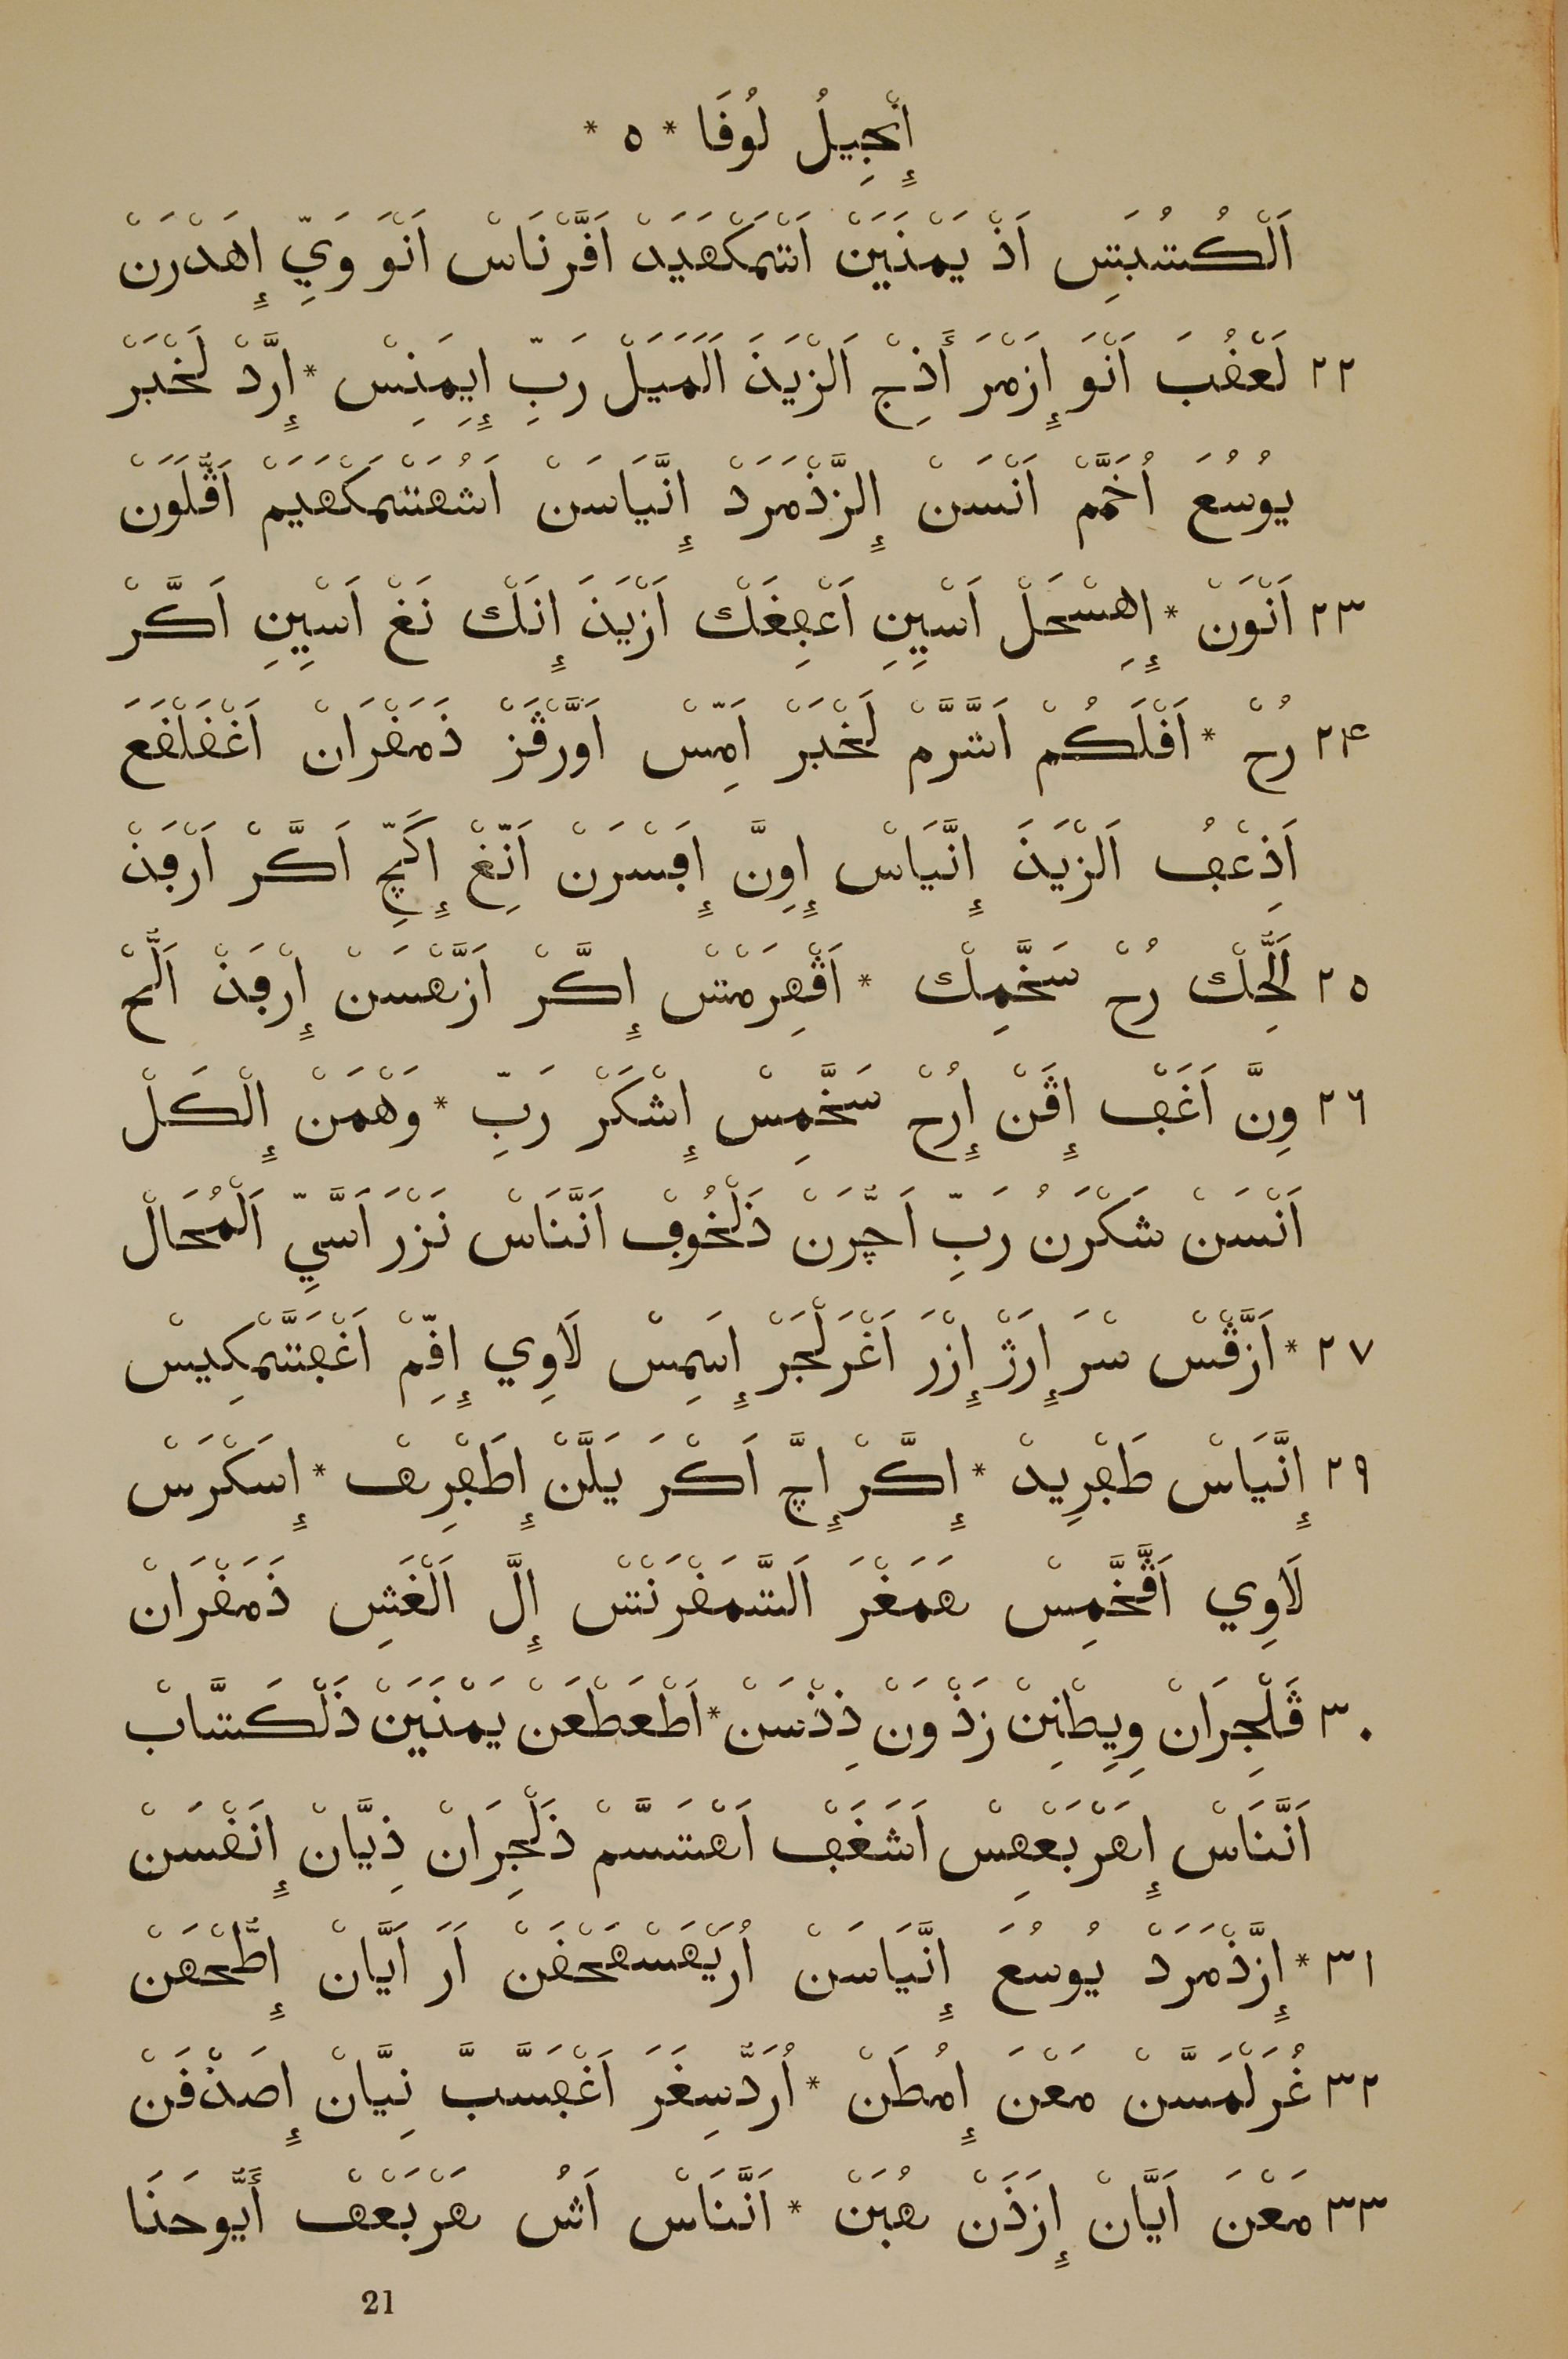 إِنْجِيلُ لُوقَا * ٥ *
اَلْكُتُبَتِس اَذْ يَمْنَيَنْ اَنْتمَكْهَيَدْ اَفَّرْنَاسْ اَنْوَ وَيِّ إِهَدْرَنْ
٢٢ لَعْڢُبَ اَنْوَ إِزَمْرَ أَذِجْ اَلزْيَذَ اَلَمَيَلْ رَبِّ إِيِمَنِسْ * إِرَّدْ لَخْبَرْ
يُوسُعَ اُخَمَّمْ اَنْسَنْ إِلزَّذْمَرَدْ إِنَّيَاسَنْ اَشُهَتمَكْهَيَمْ اَڤُّلَوَنْ
٢٣ اَنْوَنْ * إِهِسْحَلْ اَسْيِنِ اَعْڢِغَكْ اَزْيَذَ إِنَكْ نَغْ اَسْيِنِ اَكَّرْ
٢٤ رُحْ * اَفْلَكُمْ اَتَّرَّمْ لَخْبَرْ اَمِّسْ اَوَرَّڤَزْ ذَمَفْرَانْ اَغْفَلْڢَعَ
اَذِعْڢُ اَلزْيَذَ إِنَّيَاسْ إِوِنَّ إِڢَسْرَنْ اَنِّغْ إِكَچِّ اَكَّرْ اَرْفَذْ
٢٥ لَُحِّكْ رُحْ سَخَّمِكْ * اَڤْهِرَمْتْسْ إِكَّرْ اَزَّهْسَنْ إِرْفَذْ اَلُّحْ
٢٦ وِنَّ اَغَڢْ إِڤَنْ إِرُحْ سَخَّمِسْ إِشْكَرْ رَبِّ * وَهْمَنْ إِلْكَلْ
اَنْسَنْ شَكْرَنْ رَبِّ اَچَّرَنْ ذَلْخُوڢْ اَنَّنَاسْ نَزْرَ اَسَّيِّ اَلْمُحَالْ
٢٧ * اَزَّڤْسْ سْرَ إِرَژْ إِزْرَ اَغْرَلْجَرْ إِسَمِسْ لَاوِي إِقِّمْ اَغْڢَتَّمْكِيسْ
٢٩ إِنَّيَاسْ طَڢْرِيدْ * إِكَّرْ إِچَّ اَكْرَ يَلَّنْ إِطَڢْرِهْ * إِسَكْرَسْ
لَاوِي اَڤَّخَّمِسْ هَمَغْرَ اَلتَّمَفْرَنْتسْ إِلَّ اَلْغَشِ ذَمَفْرَانْ
٣٠ ڤَلْجِرَانْ وِيِطْنِنْ زَذْوَنْ ذِذْسَنْ * اَطْعَطْعَنْ يَمْنَيَنْ ذَلْكَتَّابْ
اَنَّنَاسْ إِهَرْبَعْهِسْ اَشَغَڢْ اَهْتَسَّمْ ذَلْجِرَانْ ذِيَّانْ إِنَفْسَنْ
٣١ * إِزَّذْمَرَدْ يُوسُعَ إِنَّيَاسَنْ اُرَيْهَسْهَحْفَنْ اَرَ اَيَّانْ إِطَُّحْهَنْ
٣٢ غُرَلْمَسَّنْ مَعْنَ إِمُطَنْ * اُرَدُّسِغَرَ اَغْڢَسَّبَّ نِيَّانْ إِصَذْفَنْ
٣٣ مَعْنَ اَيَّانْ إِزَذَنْ هُبَنْ * اَنَّنَاسْ اَشُ هَرْبَعْهْ أَيُّوحَنَا
21